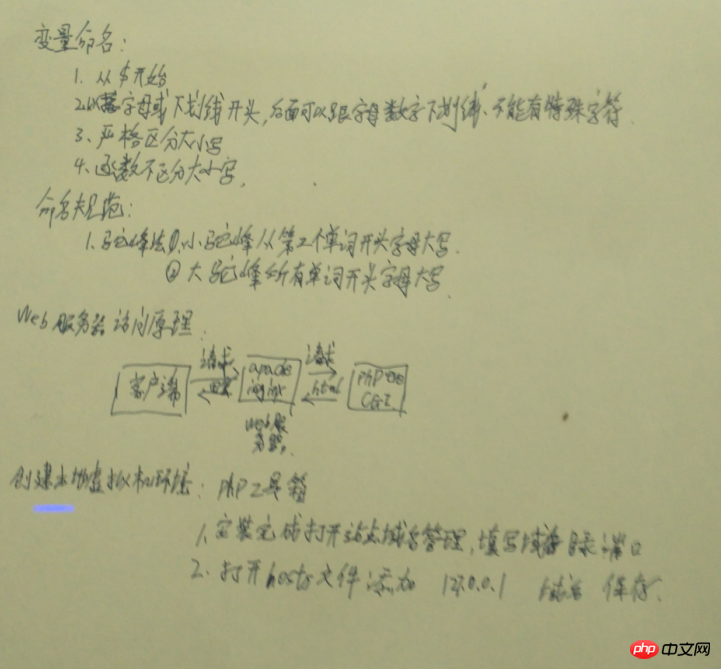 变量命名：
1. 从$开始
2.以字母或下划线开头,后面可以跟字母数字下划线、不能有特殊字符.
3、严格区分大小写
4、函数不区分大小写.
命名规范：
1.驼峰法①.小驼峰从第2个单词开头字母大写.
②大驼峰所有单词开头字母大写.
Web服务器访问原理：
请求 请求
客户端 apache nginx html php CGI
web服务器.
创建本地虚拟机环境：php工具箱
1、安装完成打开站点域名管理,填写域名目录端口
2、打开hosts文件添加 127.0.0.1 域名 保存.
php 中文网